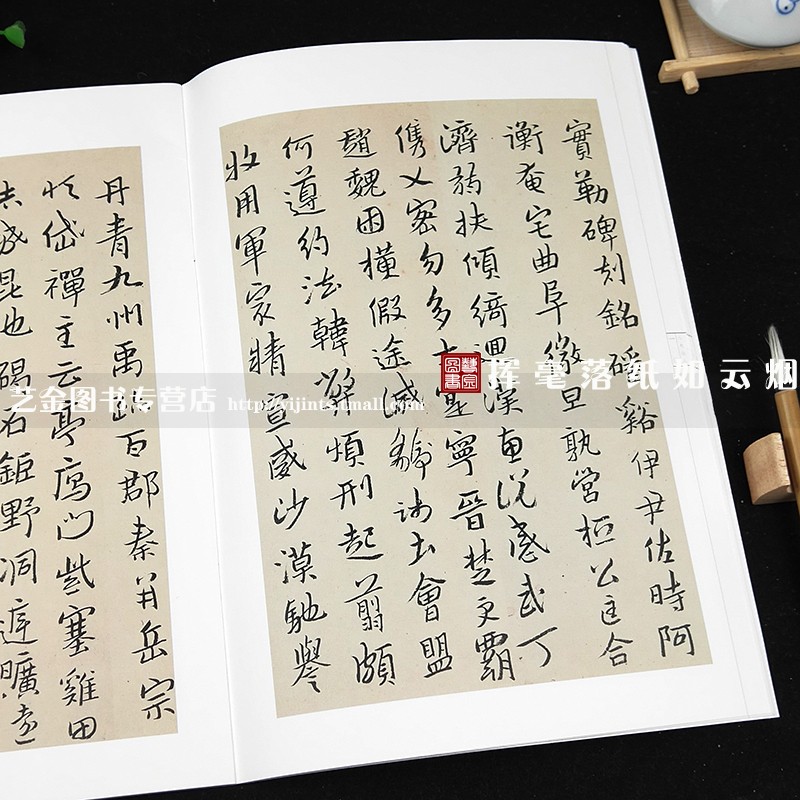 實勒碑刻銘磻谿伊尹佐時阿
衡奄宅曲阜微旦孰營桓公匡合
濟弱扶傾綺迴漢惠說感武丁
儁乂密勿多士寔寧晉楚更霸
趙魏困橫假途滅虢踐土會盟
何遵約法韓弊煩刑起翦頗
牧用軍冣精宣威沙漠馳譽
丹青九州禹跡百郡秦并岳宗
恒岱禪主云亭鴈門紫塞雞田
城昆池碣石鉅野洞庭曠遠
艺金图书专营店 http://yijints.tmall.com
挥毫落纸如云烟